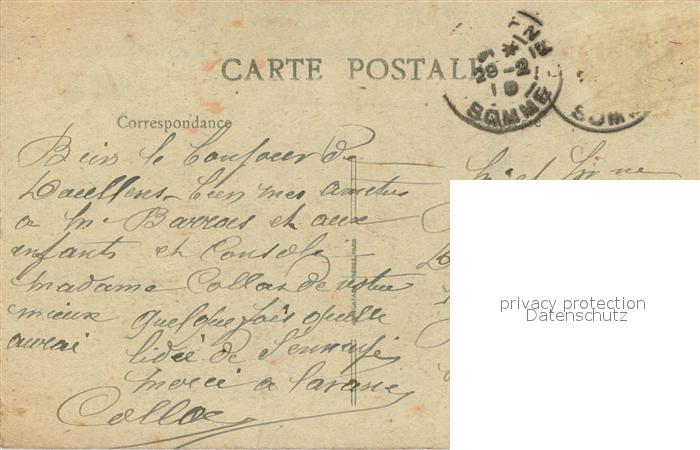 CARTE POSTALE
Correspondance
Bein le bonjour de
Doullens bien mes amities
a Mr Barrois et aux
enfants et Console
madame Collas de votre
mieux quelquefois quelle
aurai lidée de Sennuyé
merci a lavance
Collas
Mr et Mme
29 - 2
SOMME
SOMM
privacy protection
Datenschutz